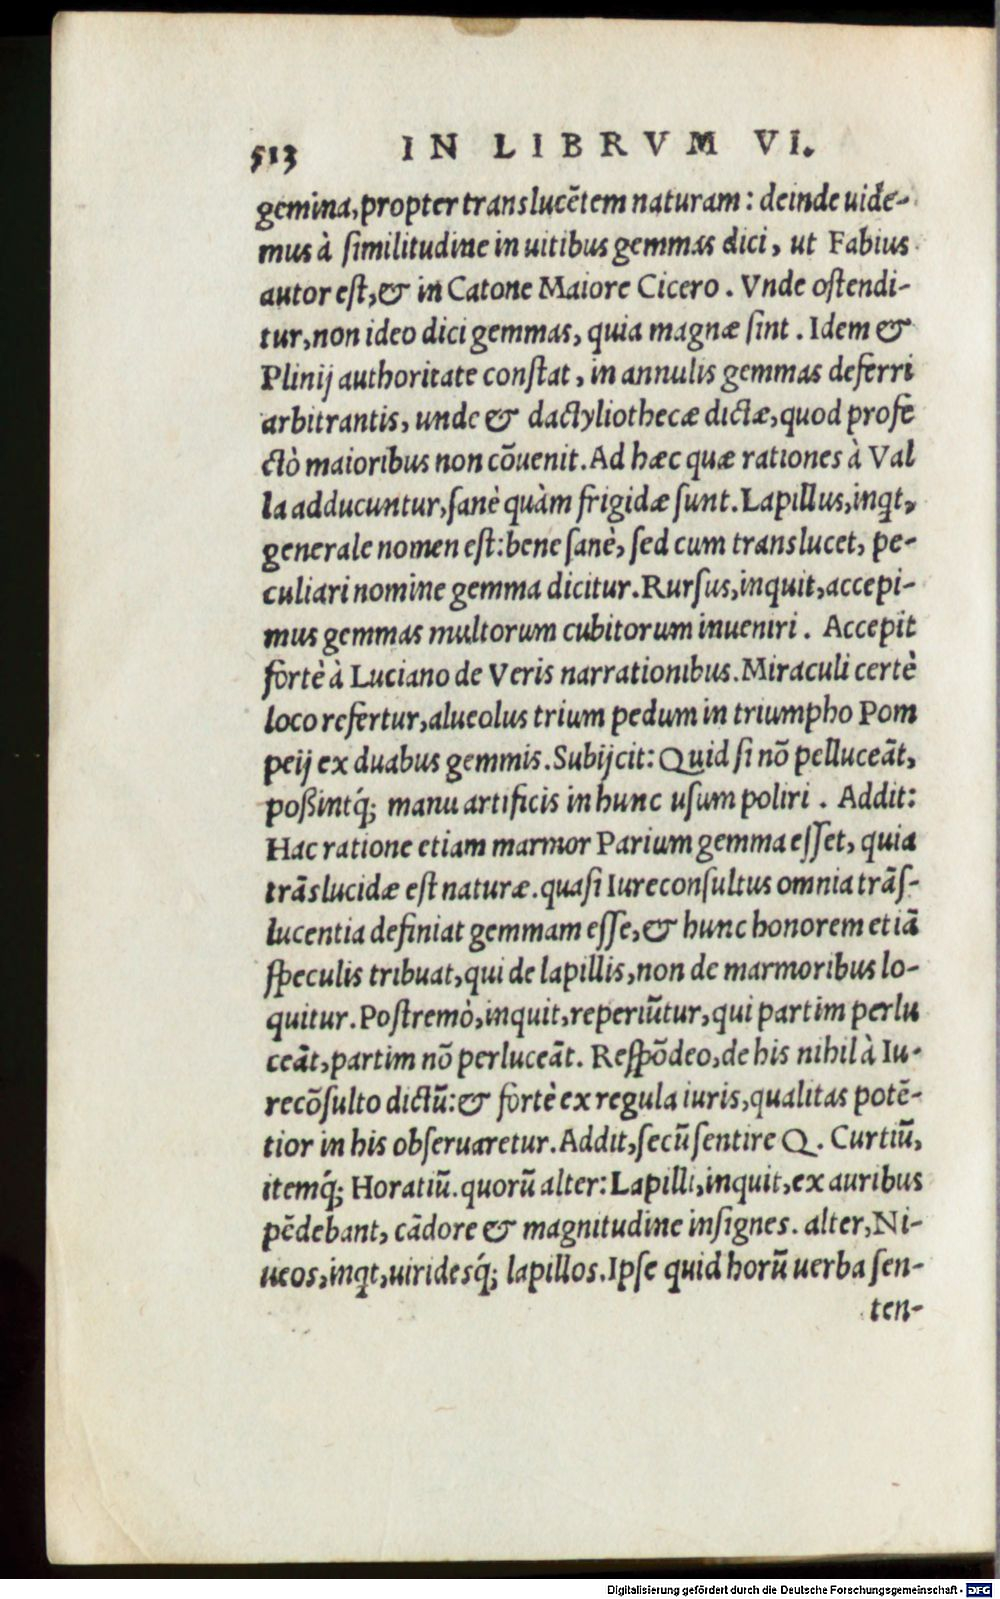 513 IN LIBRVM VI.
gemina, propter translucẽtem naturam: deinde uide-
mus à ſimilitudine in uitibus gemmas dici, ut Fabius
autor eſt, & in Catone Maiore Cicero. Vnde oſtendi-
tur, non ideo dici gemmas, quia magnæ ſint. Idem &
Plinij authoritate conſtat, in annulis gemmas deferri
arbitrantis, unde & dactyliothecæ dictæ, quod profe
ctò maioribus non cõuenit. Ad hæc quæ rationes à Val
la adducuntur, ſanè quàm frigidæ ſunt. Lapillus, inqt,
generale nomen eſt: bene ſanè, ſed cum translucet, pe-
culiari nomine gemma dicitur. Rurſus, inquit, accepi-
mus gemmas multorum cubitorum inueniri. Accepit
fortè à Luciano de Veris narrationibus. Miraculi certè
loco refertur, alueolus trium pedum in triumpho Pom
peij ex duabus gemmis. Subijcit: Quid ſi nõ pelluceãt,
poßintq́; manu artificis in hunc uſum poliri. Addit:
Hac ratione etiam marmor Parium gemma eſſet, quia
trãslucidæ eſt naturæ. quaſi Iureconſultus omnia trãſ-
lucentia definiat gemmam eſſe, & hunc honorem etiã
ſpeculis tribuat, qui de lapillis, non de marmoribus lo-
quitur. Poſtremò, inquit, reperiũtur, qui partim perlu
ceãt, partim nõ perluceãt. Reſpõdeo, de his nihil à Iu-
recõſulto dictũ: & fortè ex regula iuris, qualitas potẽ-
tior in his obſeruaretur. Addit, ſecũ ſentire Q. Curtiũ,
itemq́; Horatiũ. quorũ alter: Lapilli, inquit, ex auribus
pẽdebant, cãdore & magnitudine inſignes. alter, Ni-
ueos, inqt, uiridesq́; lapillos. Ipſe quid horũ uerba ſen-
ten-
Digitalisierung gefördert durch die Deutsche Forschungsgemeinschaft - DFG